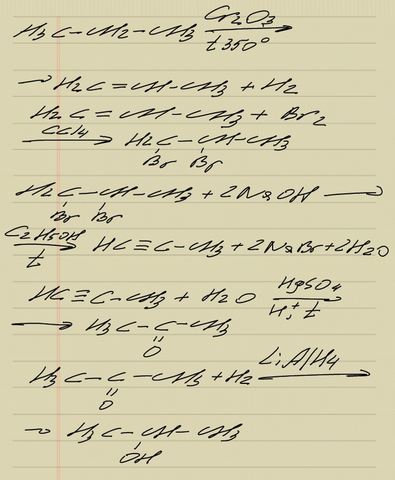 H₃C–CH₂–CH₃ Cr₂O₃ t 350° →
→ H₂C=CH–CH₃ + H₂
H₂C=CH–CH₃ + Br₂
CCl₄ → H₂C–CH–CH₃
Br Br
H₂C–CH–CH₃ + 2NaOH →
Br Br
C₂H₅OH t → HC≡C–CH₃ + 2NaBr + 2H₂O
HC≡C–CH₃ + H₂O HgSO₄ H⁺, t →
→ H₃C–C–CH₃
O
H₃C–C–CH₃ + H₂ LiAlH₄ →
O
→ H₃C–CH–CH₃
OH